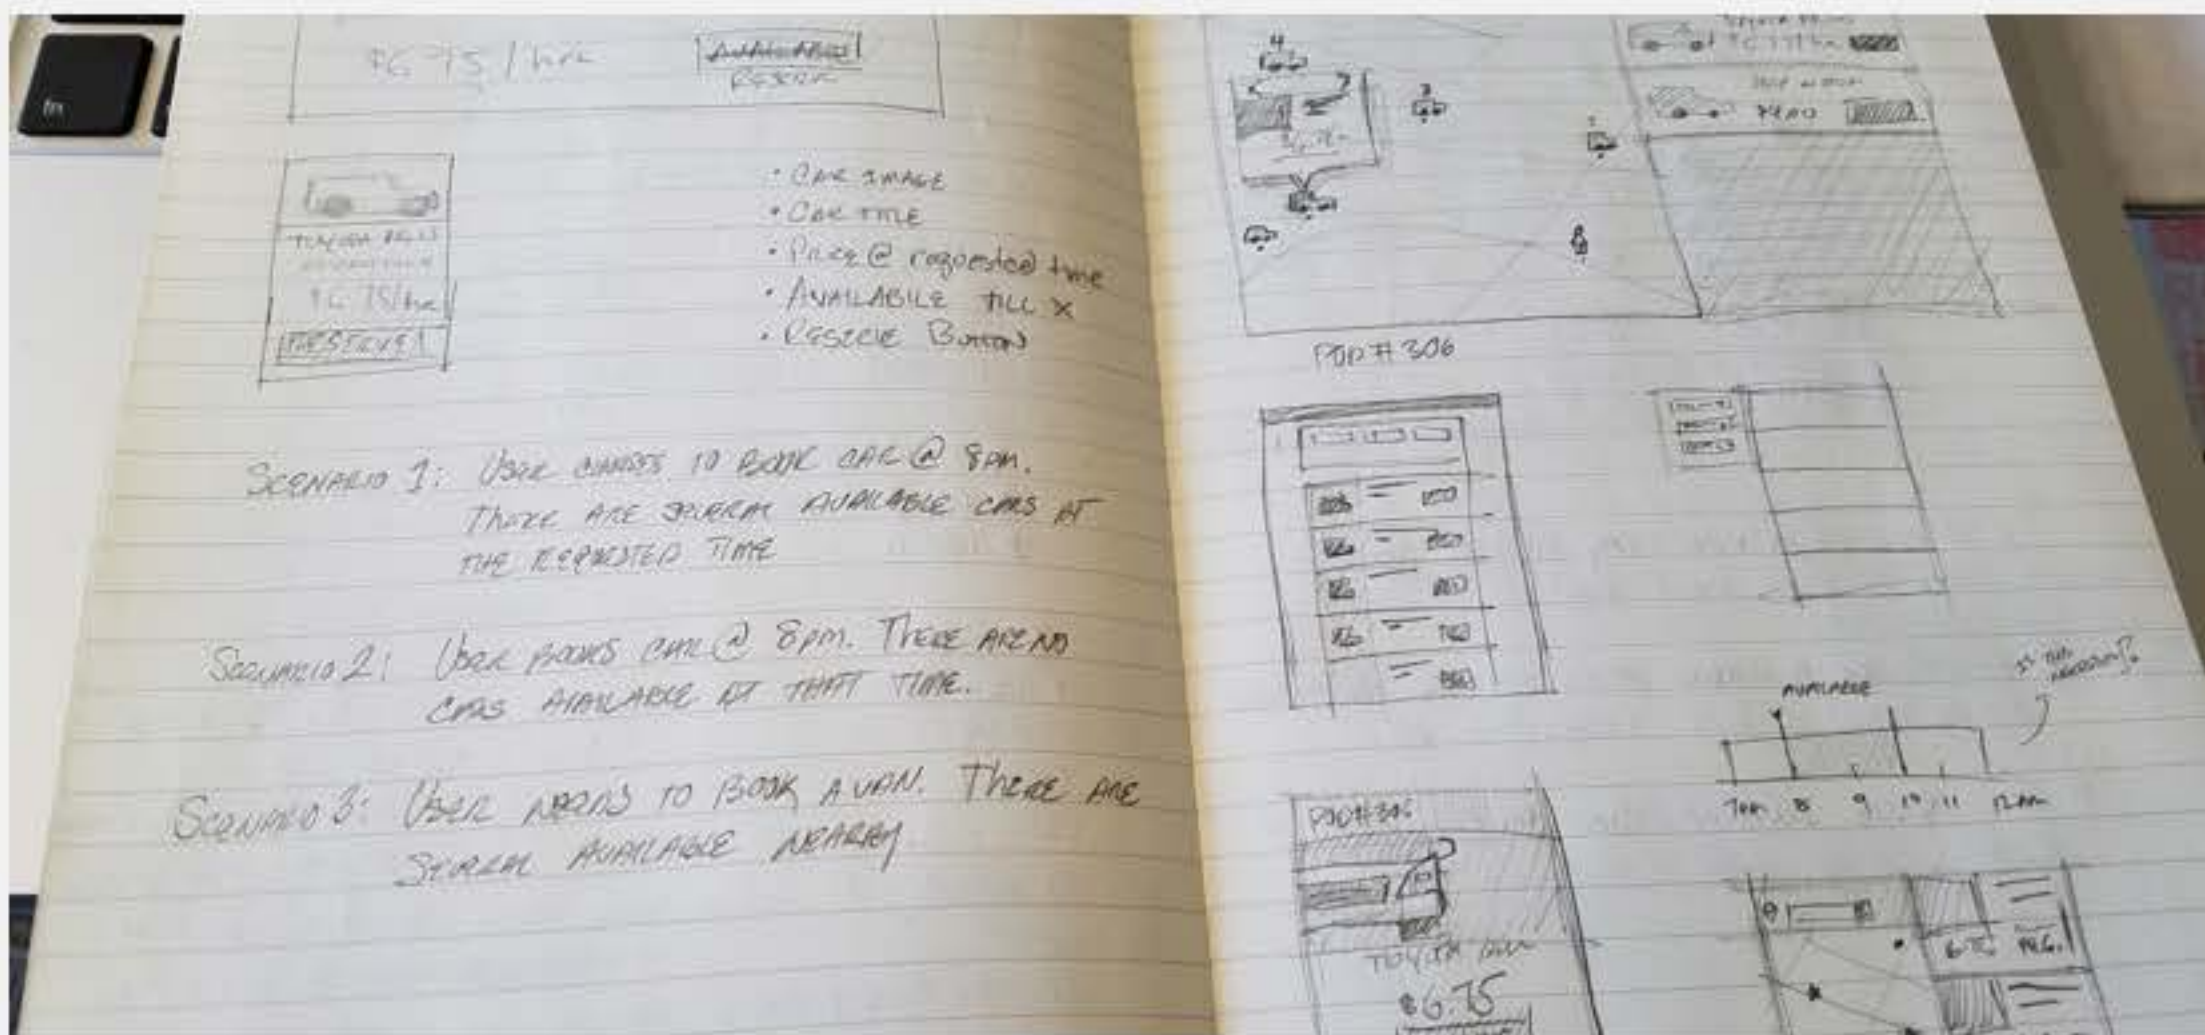 $6.75/hr
AVAILABLE
RESERVE
TOYOTA
$6.75/hr
RESERVE
• CAR IMAGE
• CAR TITLE
• PRICE @ requested time
• AVAILABILE TILL X
• RESERVE BUTTON
SCENARIO 1: USER WANTS TO BOOK CAR @ 8PM.
THERE ARE SEVERAL AVAILABLE CARS AT
THE REQUESTED TIME
SCENARIO 2: USER BOOKS CAR @ 8PM. THERE ARE NO
CARS AVAILABLE AT THAT TIME.
SCENARIO 3: USER NEEDS TO BOOK A VAN. THERE ARE
SEVERAL AVAILABLE NEARBY
4
3
POD # 306
IS THIS
NECESSARY?
AVAILABLE
7AM 8 9 10 11 12AM
POD # 306
TOYOTA
$6.75